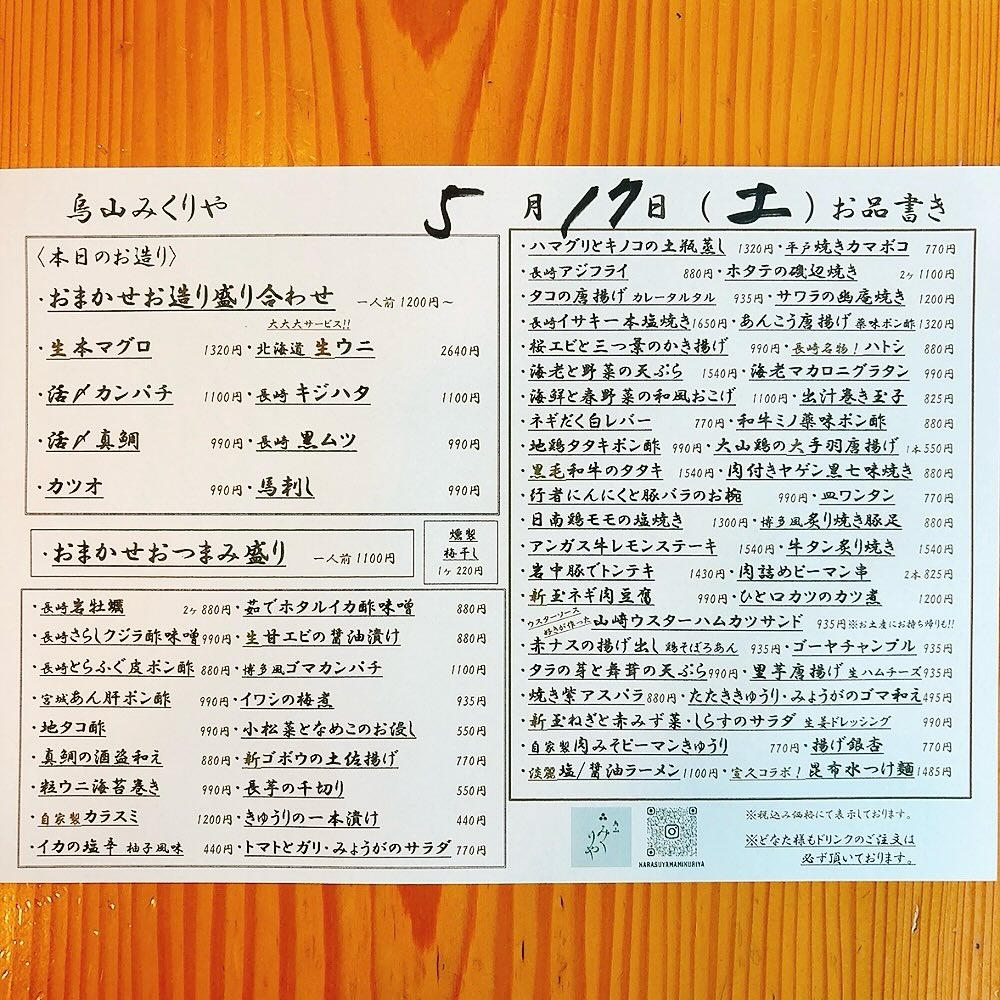 烏山みくりや 5月17日(土)お品書き
〈本日のお造り〉
・おまかせお造り盛り合わせ 一人前1200円〜
大大大サービス!!
・生本マグロ 1320円・北海道 生ウニ 2640円
・活〆カンパチ 1100円・長崎キジハタ 1100円
・活〆真鯛 990円・長崎 黒ムツ 990円
・カツオ 990円・馬刺し 990円
・おまかせおつまみ盛り 一人前1100円
燻製
梅干し
1ヶ220円
・長崎岩牡蠣 2ヶ880円・茹でホタルイカ酢味噌 880円
・長崎さらしクジラ酢味噌990円・生甘エビの醤油漬け 880円
・長崎とらふぐ皮ポン酢 880円・博多風ゴマカンパチ 1100円
・宮城あん肝ポン酢 990円・イワシの梅煮 935円
・地タコ酢 990円・小松菜となめこのお浸し 550円
・真鯛の酒盗和え 880円・新ゴボウの土佐揚げ 770円
・粒ウニ海苔巻き 990円・長芋の千切り 550円
・自家製カラスミ 1200円・きゅうりの一本漬け 440円
・イカの塩辛 柚子風味 440円・トマトとガリ・みょうがのサラダ 770円
・ハマグリとキノコの土瓶蒸し 1320円・平戸焼きカマボコ 770円
・長崎アジフライ 880円・ホタテの磯辺焼き 2ヶ1100円
・タコの唐揚げ カレータルタル 935円・サワラの幽庵焼き 1200円
・長崎イサキ一本塩焼き1650円・あんこう唐揚げ 薬味ポン酢1320円
・桜エビと三つ葉のかき揚げ 990円・長崎名物!ハトシ 880円
・海老と野菜の天ぷら 1540円・海老マカロニグラタン 990円
・海鮮と春野菜の和風おこげ 1100円・出汁巻き玉子 825円
・ネギだく白レバー 770円・和牛ミノ薬味ポン酢 880円
・地鶏タタキポン酢 990円・大山鶏の大手羽唐揚げ 1本550円
・黒毛和牛のタタキ 1540円・肉付きヤゲン黒七味焼き 880円
・行者にんにくと豚バラのお椀 990円・皿ワンタン 770円
・日南鶏モモの塩焼き 1300円・博多風炙り焼き豚足 880円
・アンガス牛レモンステーキ 1540円・牛タン炙り焼き 1540円
・岩中豚でトンテキ 1430円・肉詰めピーマン串 2本825円
・新玉ネギ肉豆腐 990円・ひと口カツのカツ煮 1200円
・ウスターソース好きが作った山崎ウスターハムカツサンド 935円※お土産にお持ち帰りも!!
・赤ナスの揚げ出し 鶏そぼろあん 935円・ゴーヤチャンプル 935円
・タラの芽と舞茸の天ぷら990円・里芋唐揚げ 生ハムチーズ935円
・焼き紫アスパラ880円・たたききゅうり・みょうがのゴマ和え495円
・新玉ねぎと赤みず菜・しらすのサラダ 生姜ドレッシング 990円
・自家製肉みそピーマンきゅうり 770円・揚げ銀杏 770円
・淡麗塩/醤油ラーメン1100円・宣久コラボ!昆布水つけ麺1485円
みくりや
KARASUYAMAMIKURIYA
※税込み価格にて表示しております。
※どなた様もドリンクのご注文は
必ず頂いております。